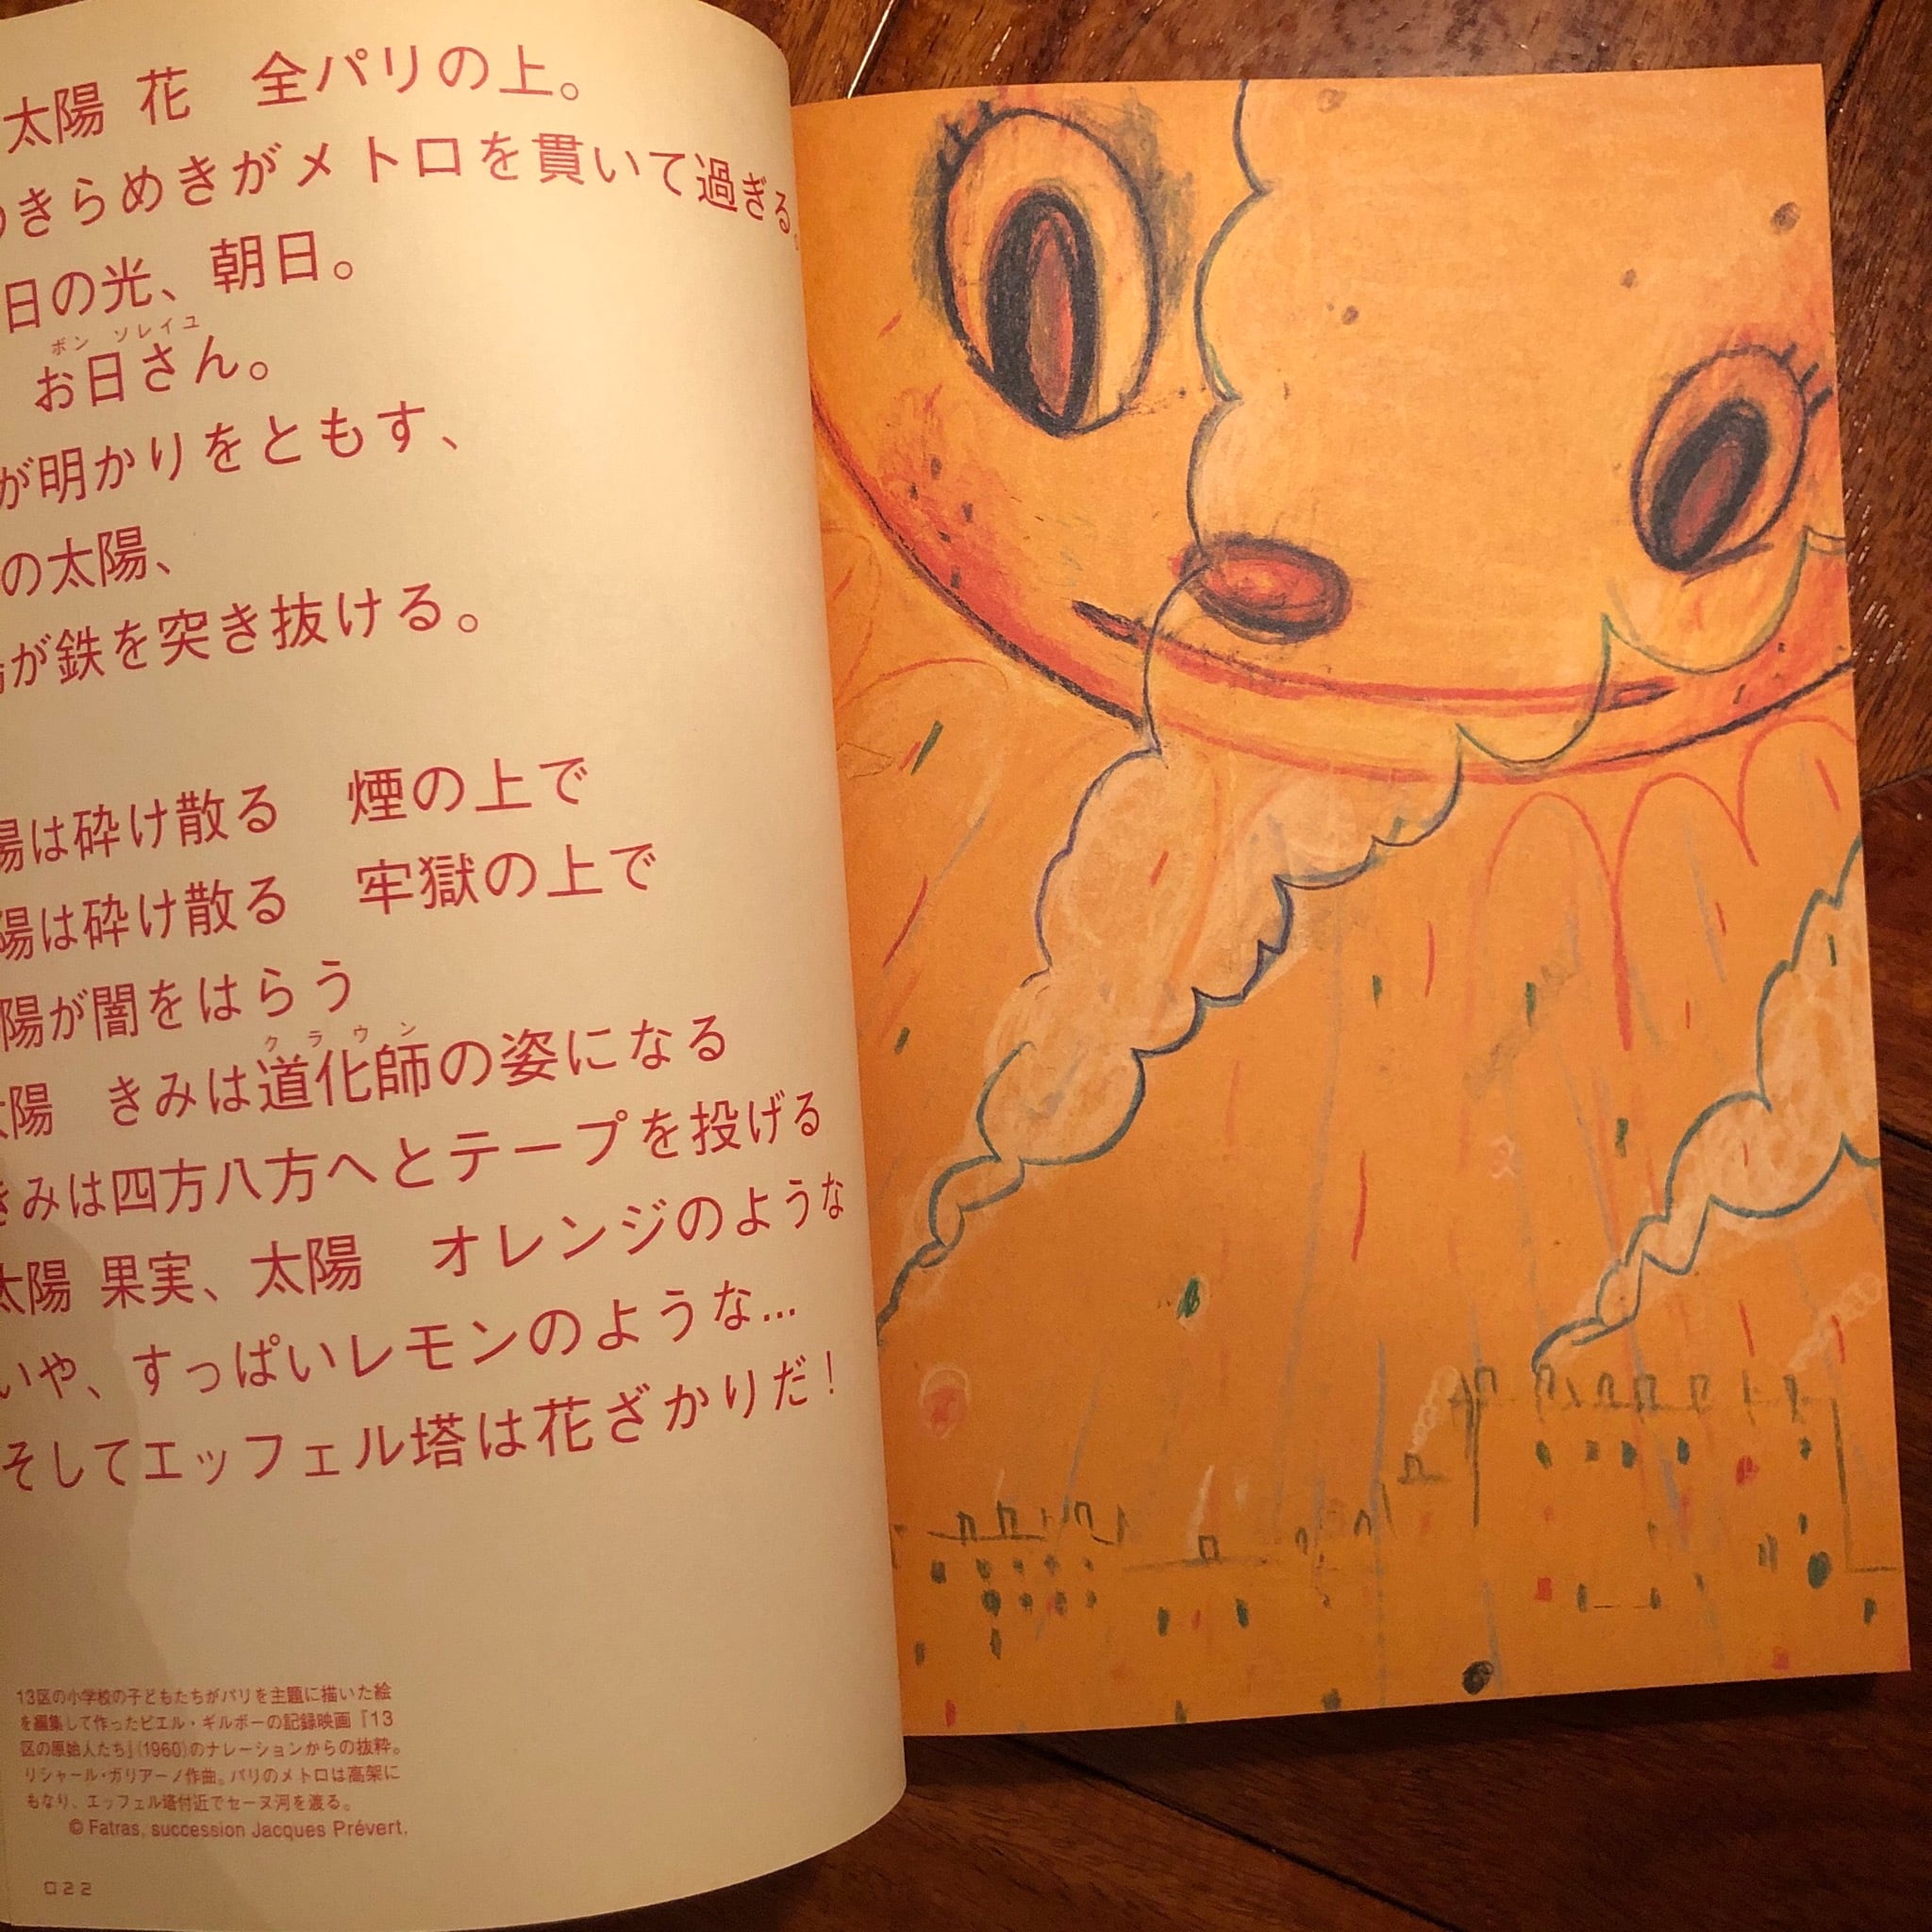 太陽 花　全パリの上。
きらめきがメトロを貫いて過ぎる。
日の光、朝日。
ボン ソレイユ
お日さん。
が明かりをともす、
の太陽、
が鉄を突き抜ける。
陽は砕け散る　煙の上で
陽は砕け散る　牢獄の上で
陽が闇をはらう
クラウン
太陽　きみは道化師の姿になる
きみは四方八方へとテープを投げる
太陽 果実、太陽　オレンジのような
いや、すっぱいレモンのような...
そしてエッフェル塔は花ざかりだ！
13区の小学校の子どもたちがパリを主題に描いた絵
を編集して作ったピエル・ギルボーの記録映画『13
区の原始人たち』(1960)のナレーションからの抜粋。
リシャール・ガリアーノ作曲。パリのメトロは高架に
もなり、エッフェル塔付近でセーヌ河を渡る。
© Fatras, succession Jacques Prévert.
022